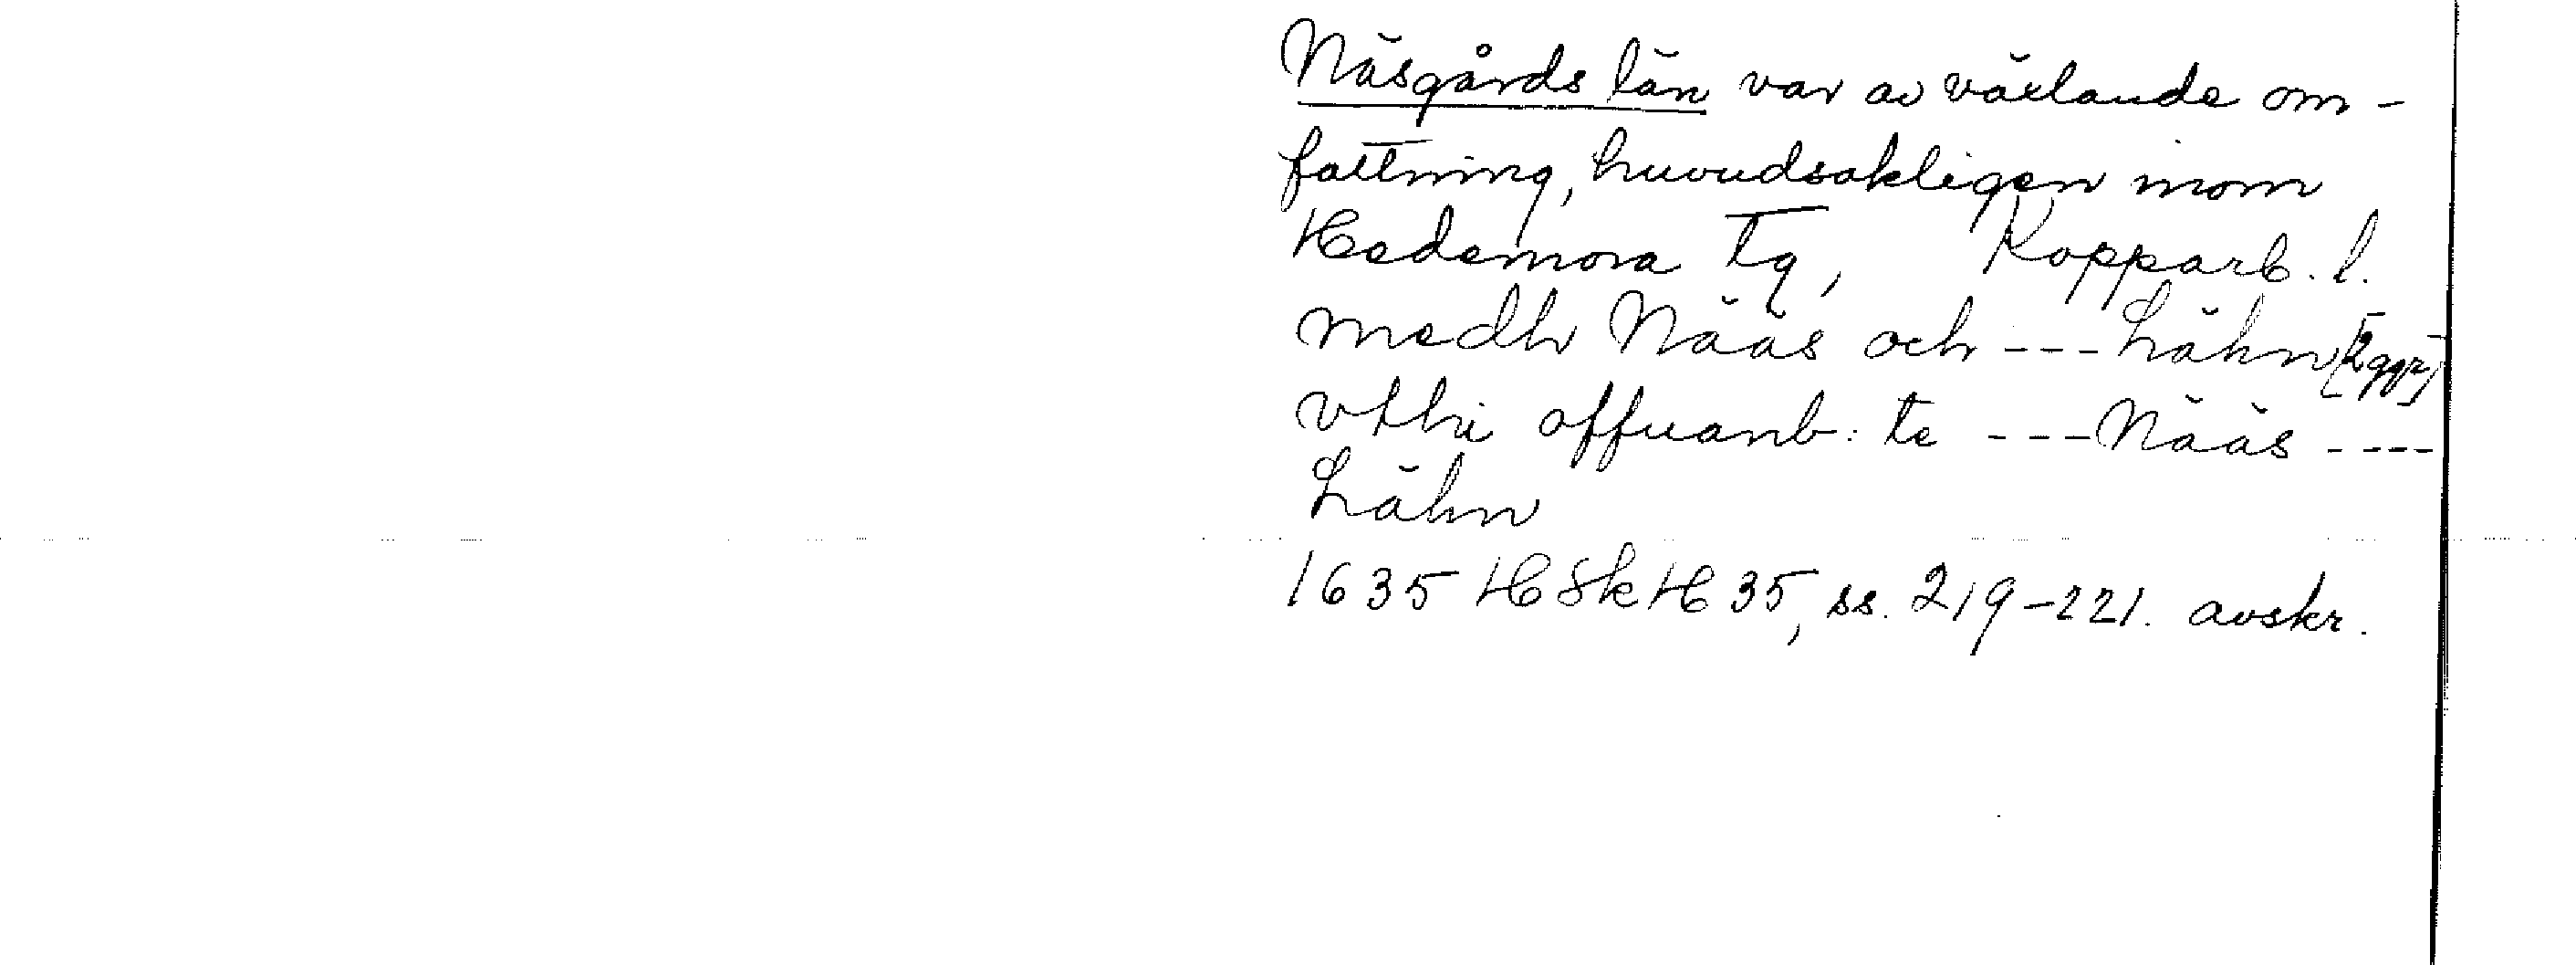 Näsgårds län var av växlande om-
fattning, huvudsakligen inom
Hedemora tg, Kopparb. l.
medh Nääs och --- Lähn [2 ggr]
vthi offuanb: te --- Nääs ----
Lähn
1635 HSkH 35, ss. 219-221. avskr.